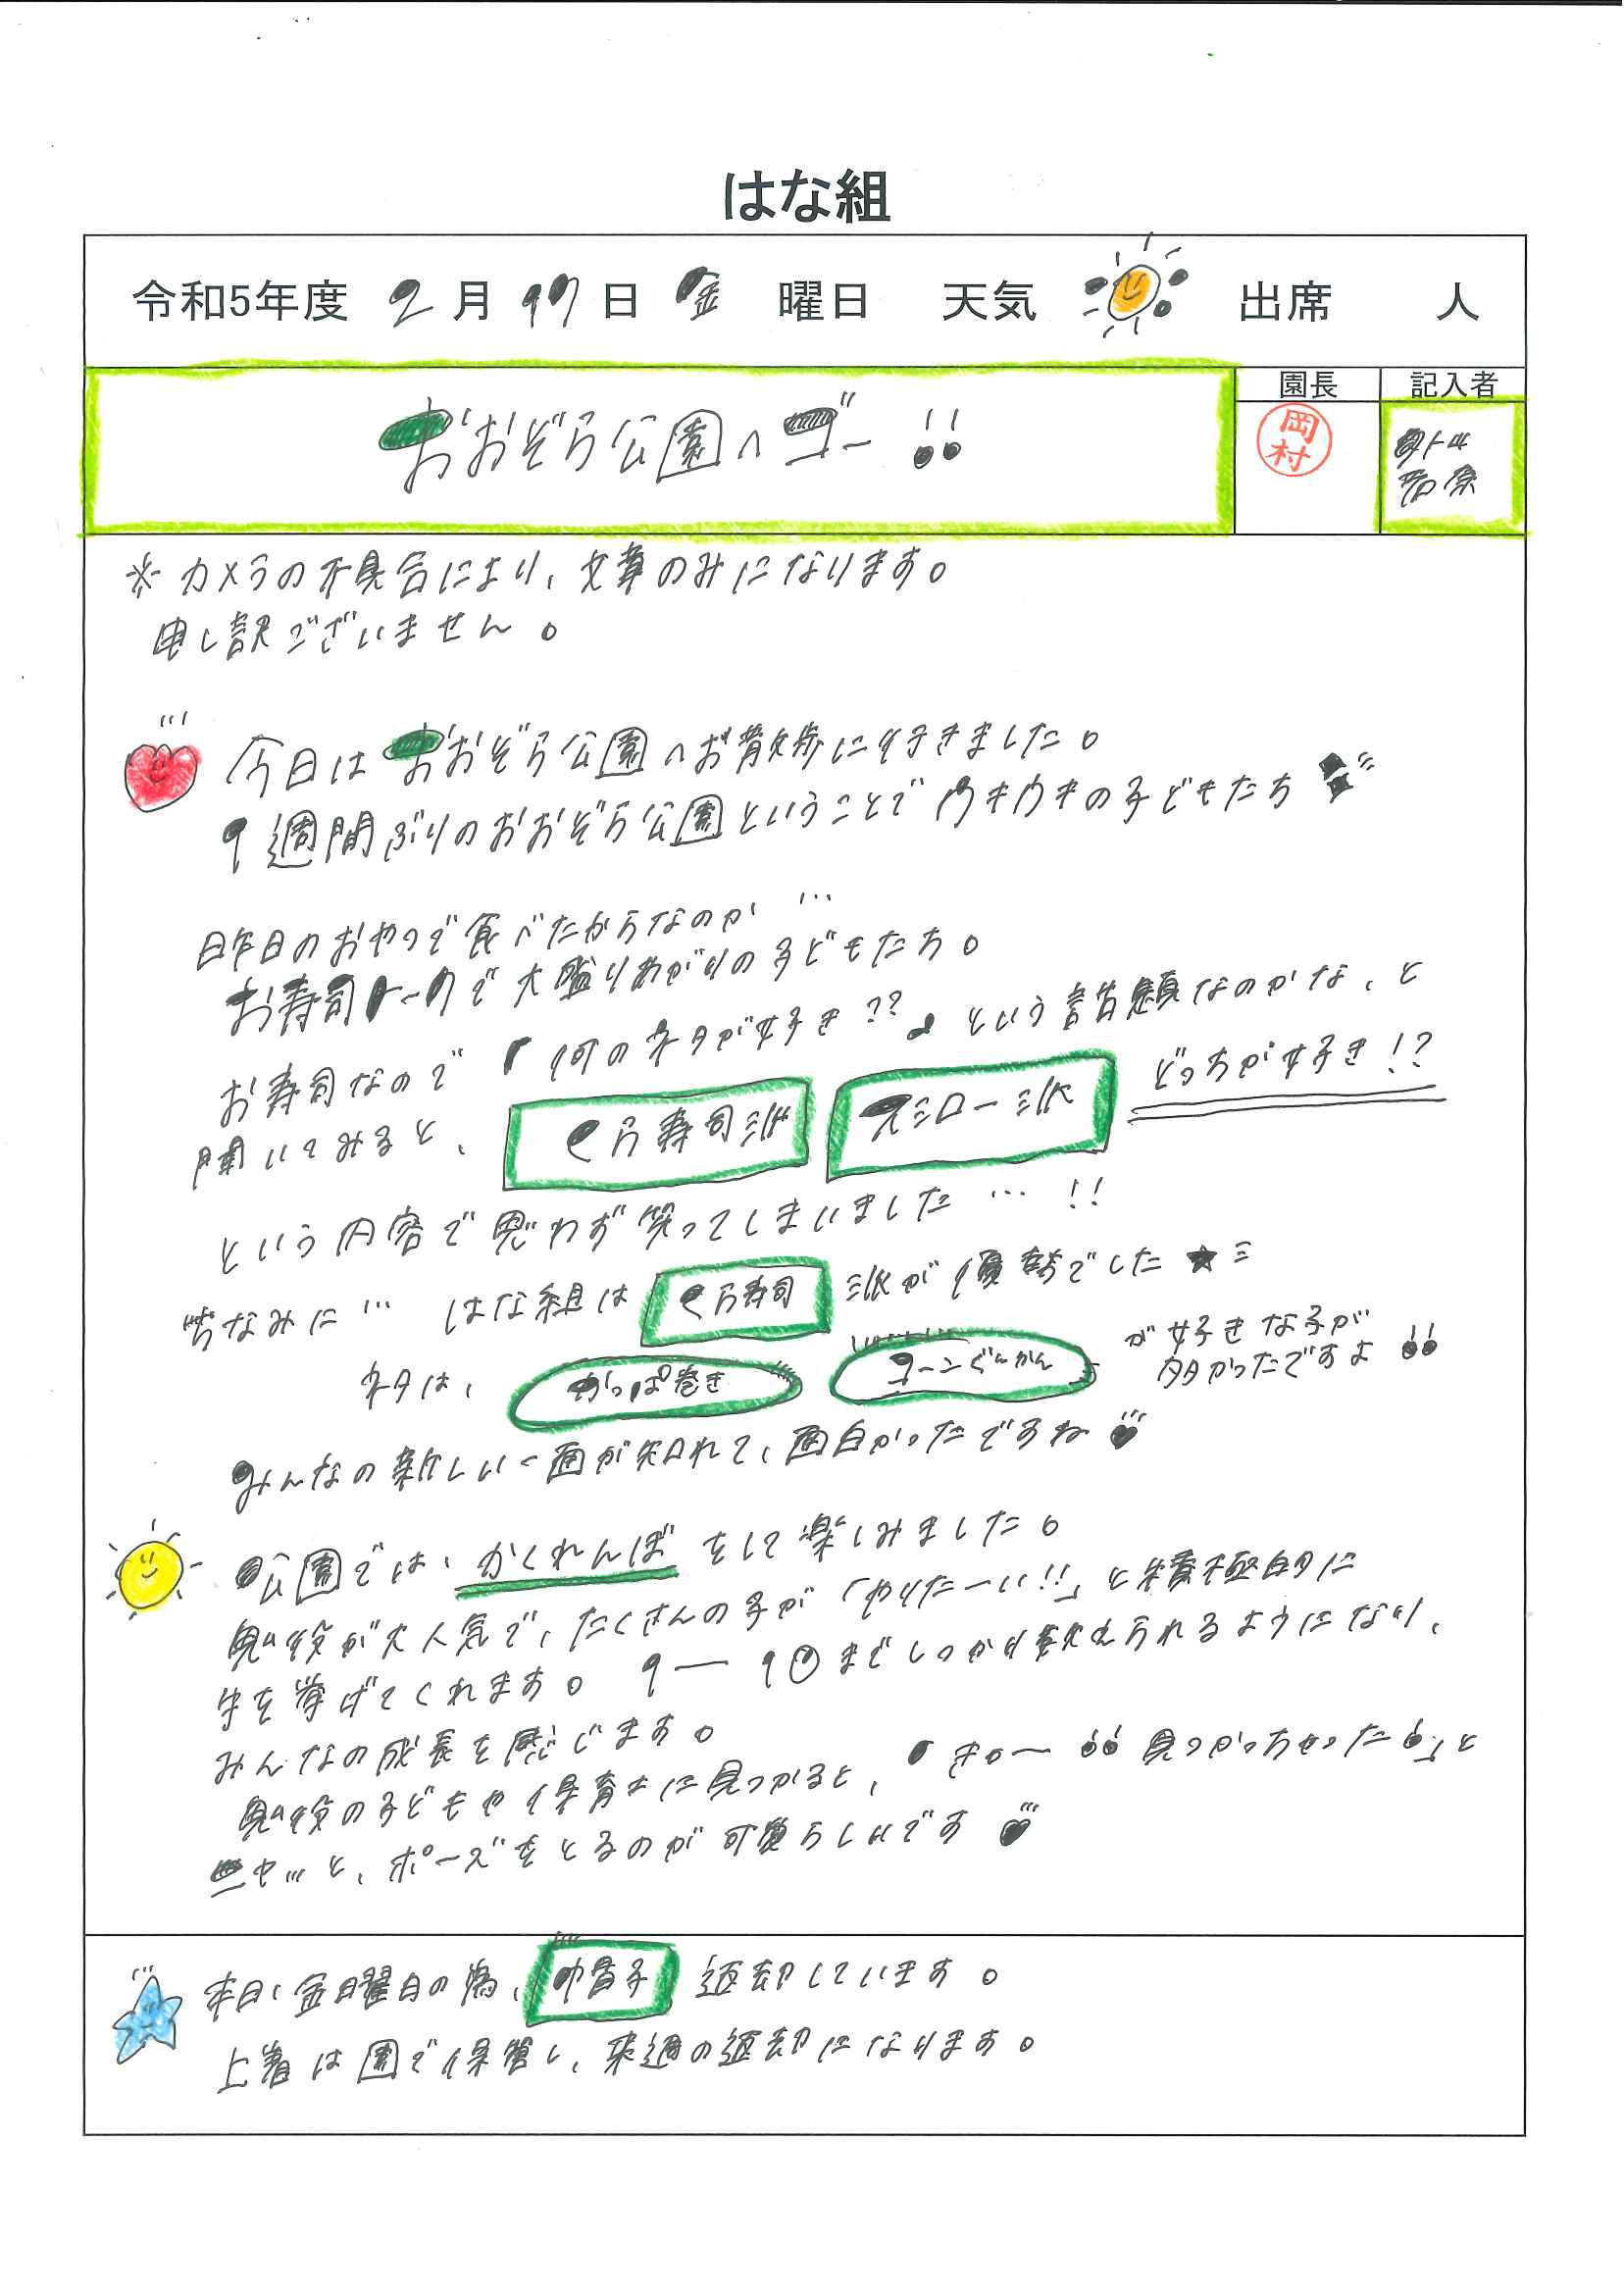 はな組
令和5年度 2月17日 金 曜日 天気 出席 人
おおぞら公園へゴー!!
園長 記入者
岡村
※カメラの不具合により、文章のみになります。
申し訳ございません。
今日はおおぞら公園へお散歩に行きました。
1週間ぶりのおおぞら公園ということでウキウキの子どもたち
昨日のおやつで食べたからなのか…
お寿司トークで大盛りあがりの子どもたち。
お寿司なので「何のネタが好き??」という話題なのかな、と
聞いてみると、くら寿司派 スシロー派 どっちが好き!?
という内容で思わず笑ってしまいました…!!
ちなみに… はな組は くら寿司 派が優勝でした★
ネタは、かっぱ巻き コーンぐんかん が好きな子が
多かったですよ!!
みんなの新しい一面が知れて、面白かったですね
公園では、かくれんぼをして楽しみました。
鬼役が大人気で、たくさんの子が「やりたーい!!」と積極的に
手を挙げてくれます。1ー10までしっかり数えられるようになり、
みんなの成長を感じます。
鬼役の子どもや保育士に見つかると、「きゃー!!見つかっちゃった!」と
ニヤッと、ポーズをとるのが可愛らしいです
本日、金曜日の為、帽子 返却しています。
上着は園で保管し、来週の返却になります。